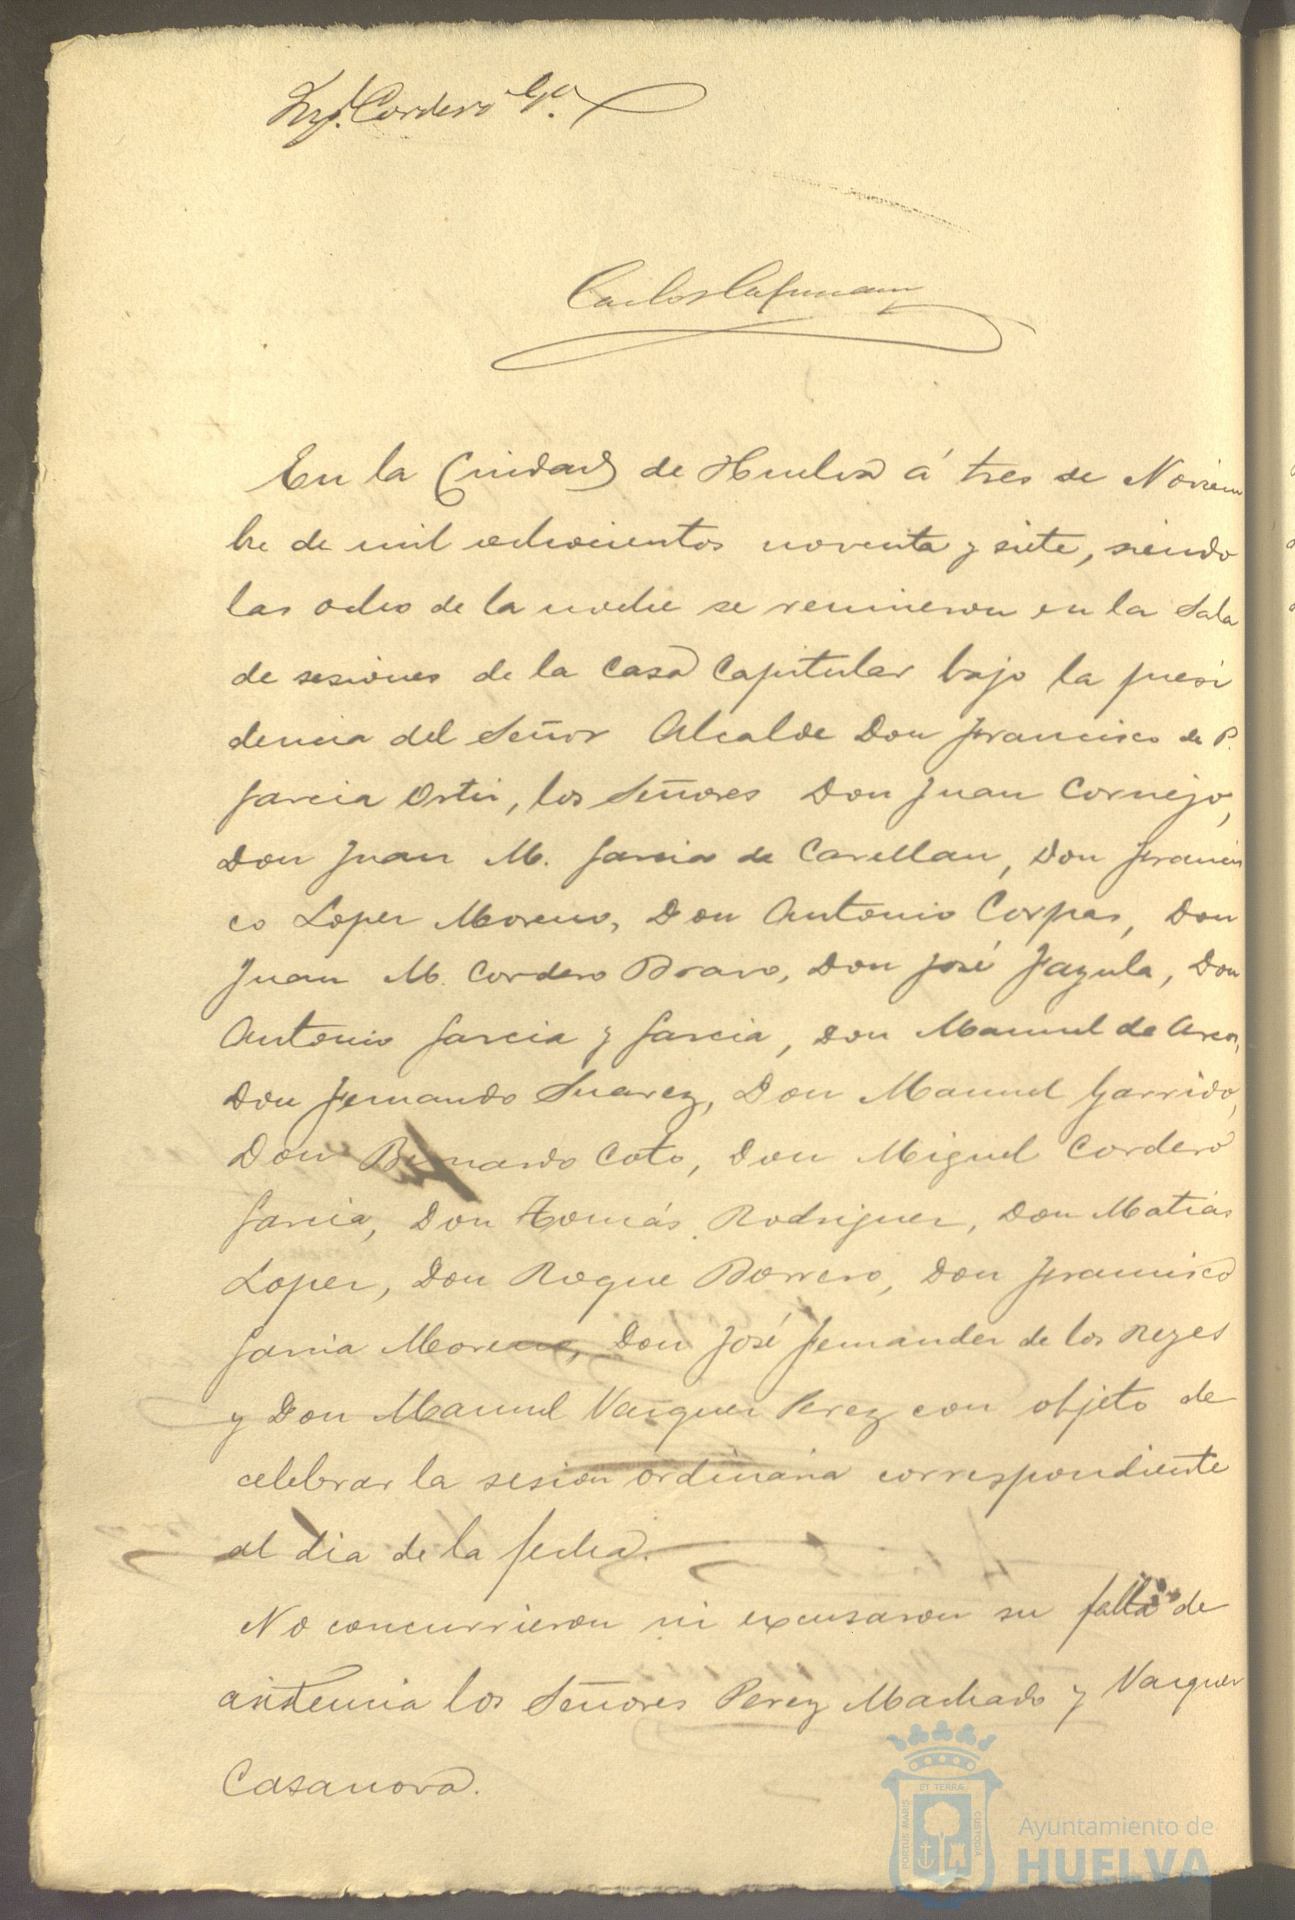 Cordero
Carlos
En la Ciudad de Huelva á tres de Noviem
bre de mil ochocientos noventa y siete, siendo
las ocho de la noche se reunieron en la Sala
de sesiones de la Casa Capitular bajo la presi
dencia del Señor Alcalde Don Francisco de P.
Garcia Ortiz, los Señores Don Juan Cornejo,
Don Juan M. Garcia de Carellan, Don Francis
co Lopez Moreno, Don Antonio Corpas, Don
Juan M. Cordero Bravo, Don José Jazula, Don
Antonio Garcia y Garcia, Don Manuel de Arcos,
Don Fernando Suarez, Don Manuel Garrido,
Don Bernardo Coto, Don Miguel Cordero
Garcia, Don Tomás Rodriguez, Don Matias
Lopez, Don Roque Borrero, Don Francisco
Garcia Moreno, Don José Fernandez de los Reyes
y Don Manuel Vazquez Perez con objeto de
celebrar la sesion ordinaria correspondiente
al dia de la fecha.
No concurrieron ni excusaron su falta de
asistencia los Señores Perez Machado y Vazquez
Casanova.
PORTUS MARIS
ET TERRÆ
CUSTODIA
Ayuntamiento de
HUELVA